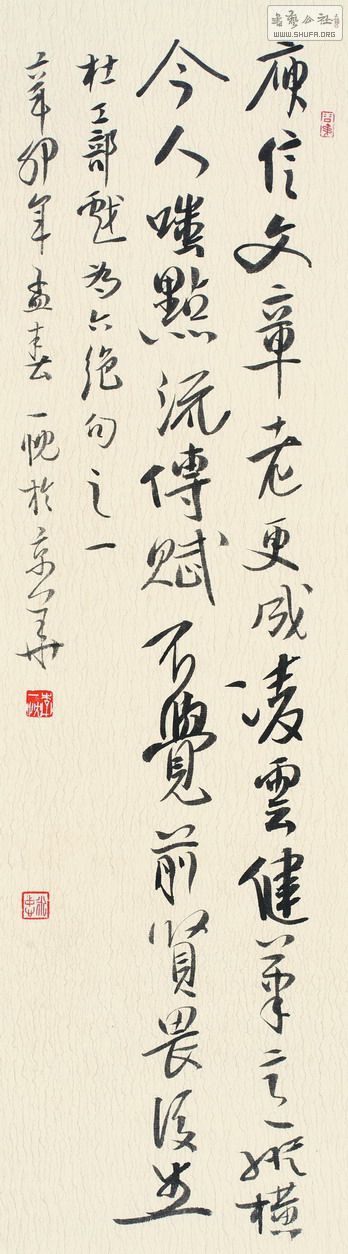 書藝公社
WWW.SHUFA.ORG
庾信文章老更成凌雲健筆意縱橫
今人嗤點流傳賦不覺前賢畏後生
杜工部戲為六絕句之一
辛卯年孟春一忱於京華